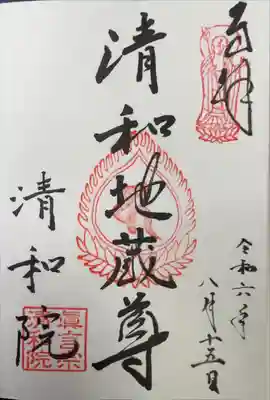 奉拝
令和六年
八月十五日
清和地蔵尊
清和院
真言宗
清和院